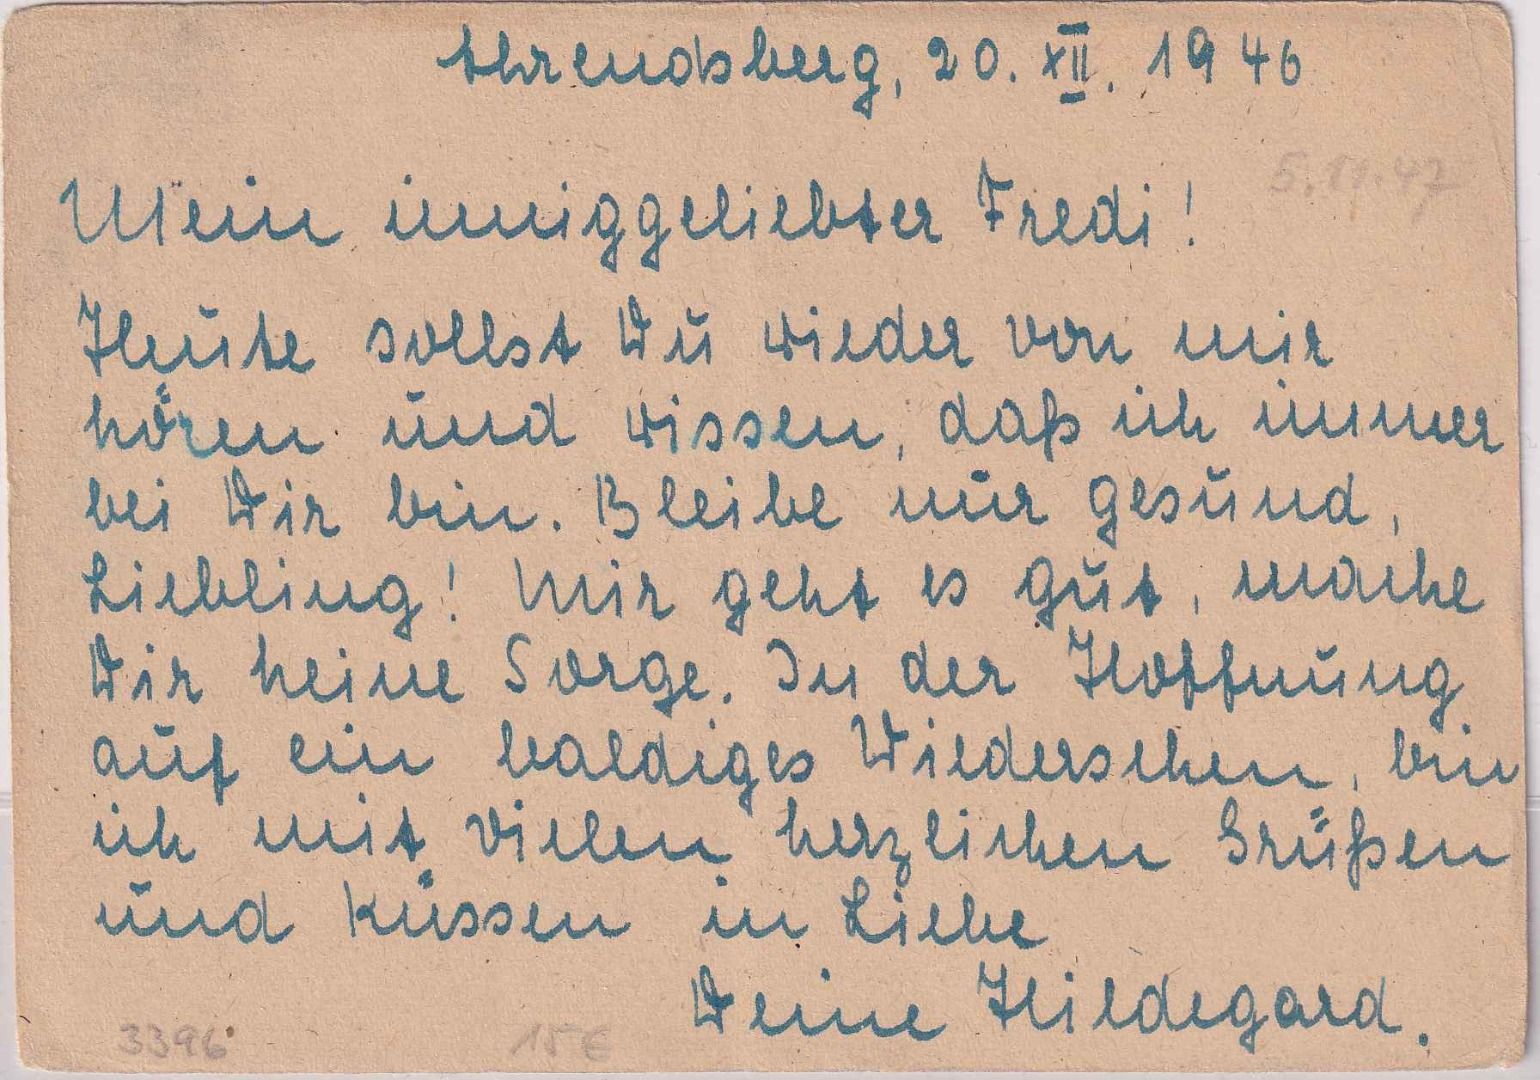 Ahrendsberg, 20. XII. 1946
5.11.47
Mein inniggeliebter Fredi!
Heute sollst Du wieder von mir
hören und wissen, daß ich immer
bei Dir bin. Bleibe nur gesund,
Liebling! Mir geht es gut, mache
Dir keine Sorge. In der Hoffnung
auf ein baldiges Wiedersehen, bin
ich mit vielen herzlichen Grüßen
und Küssen in Liebe
Deine Hildegard.
3396
15€